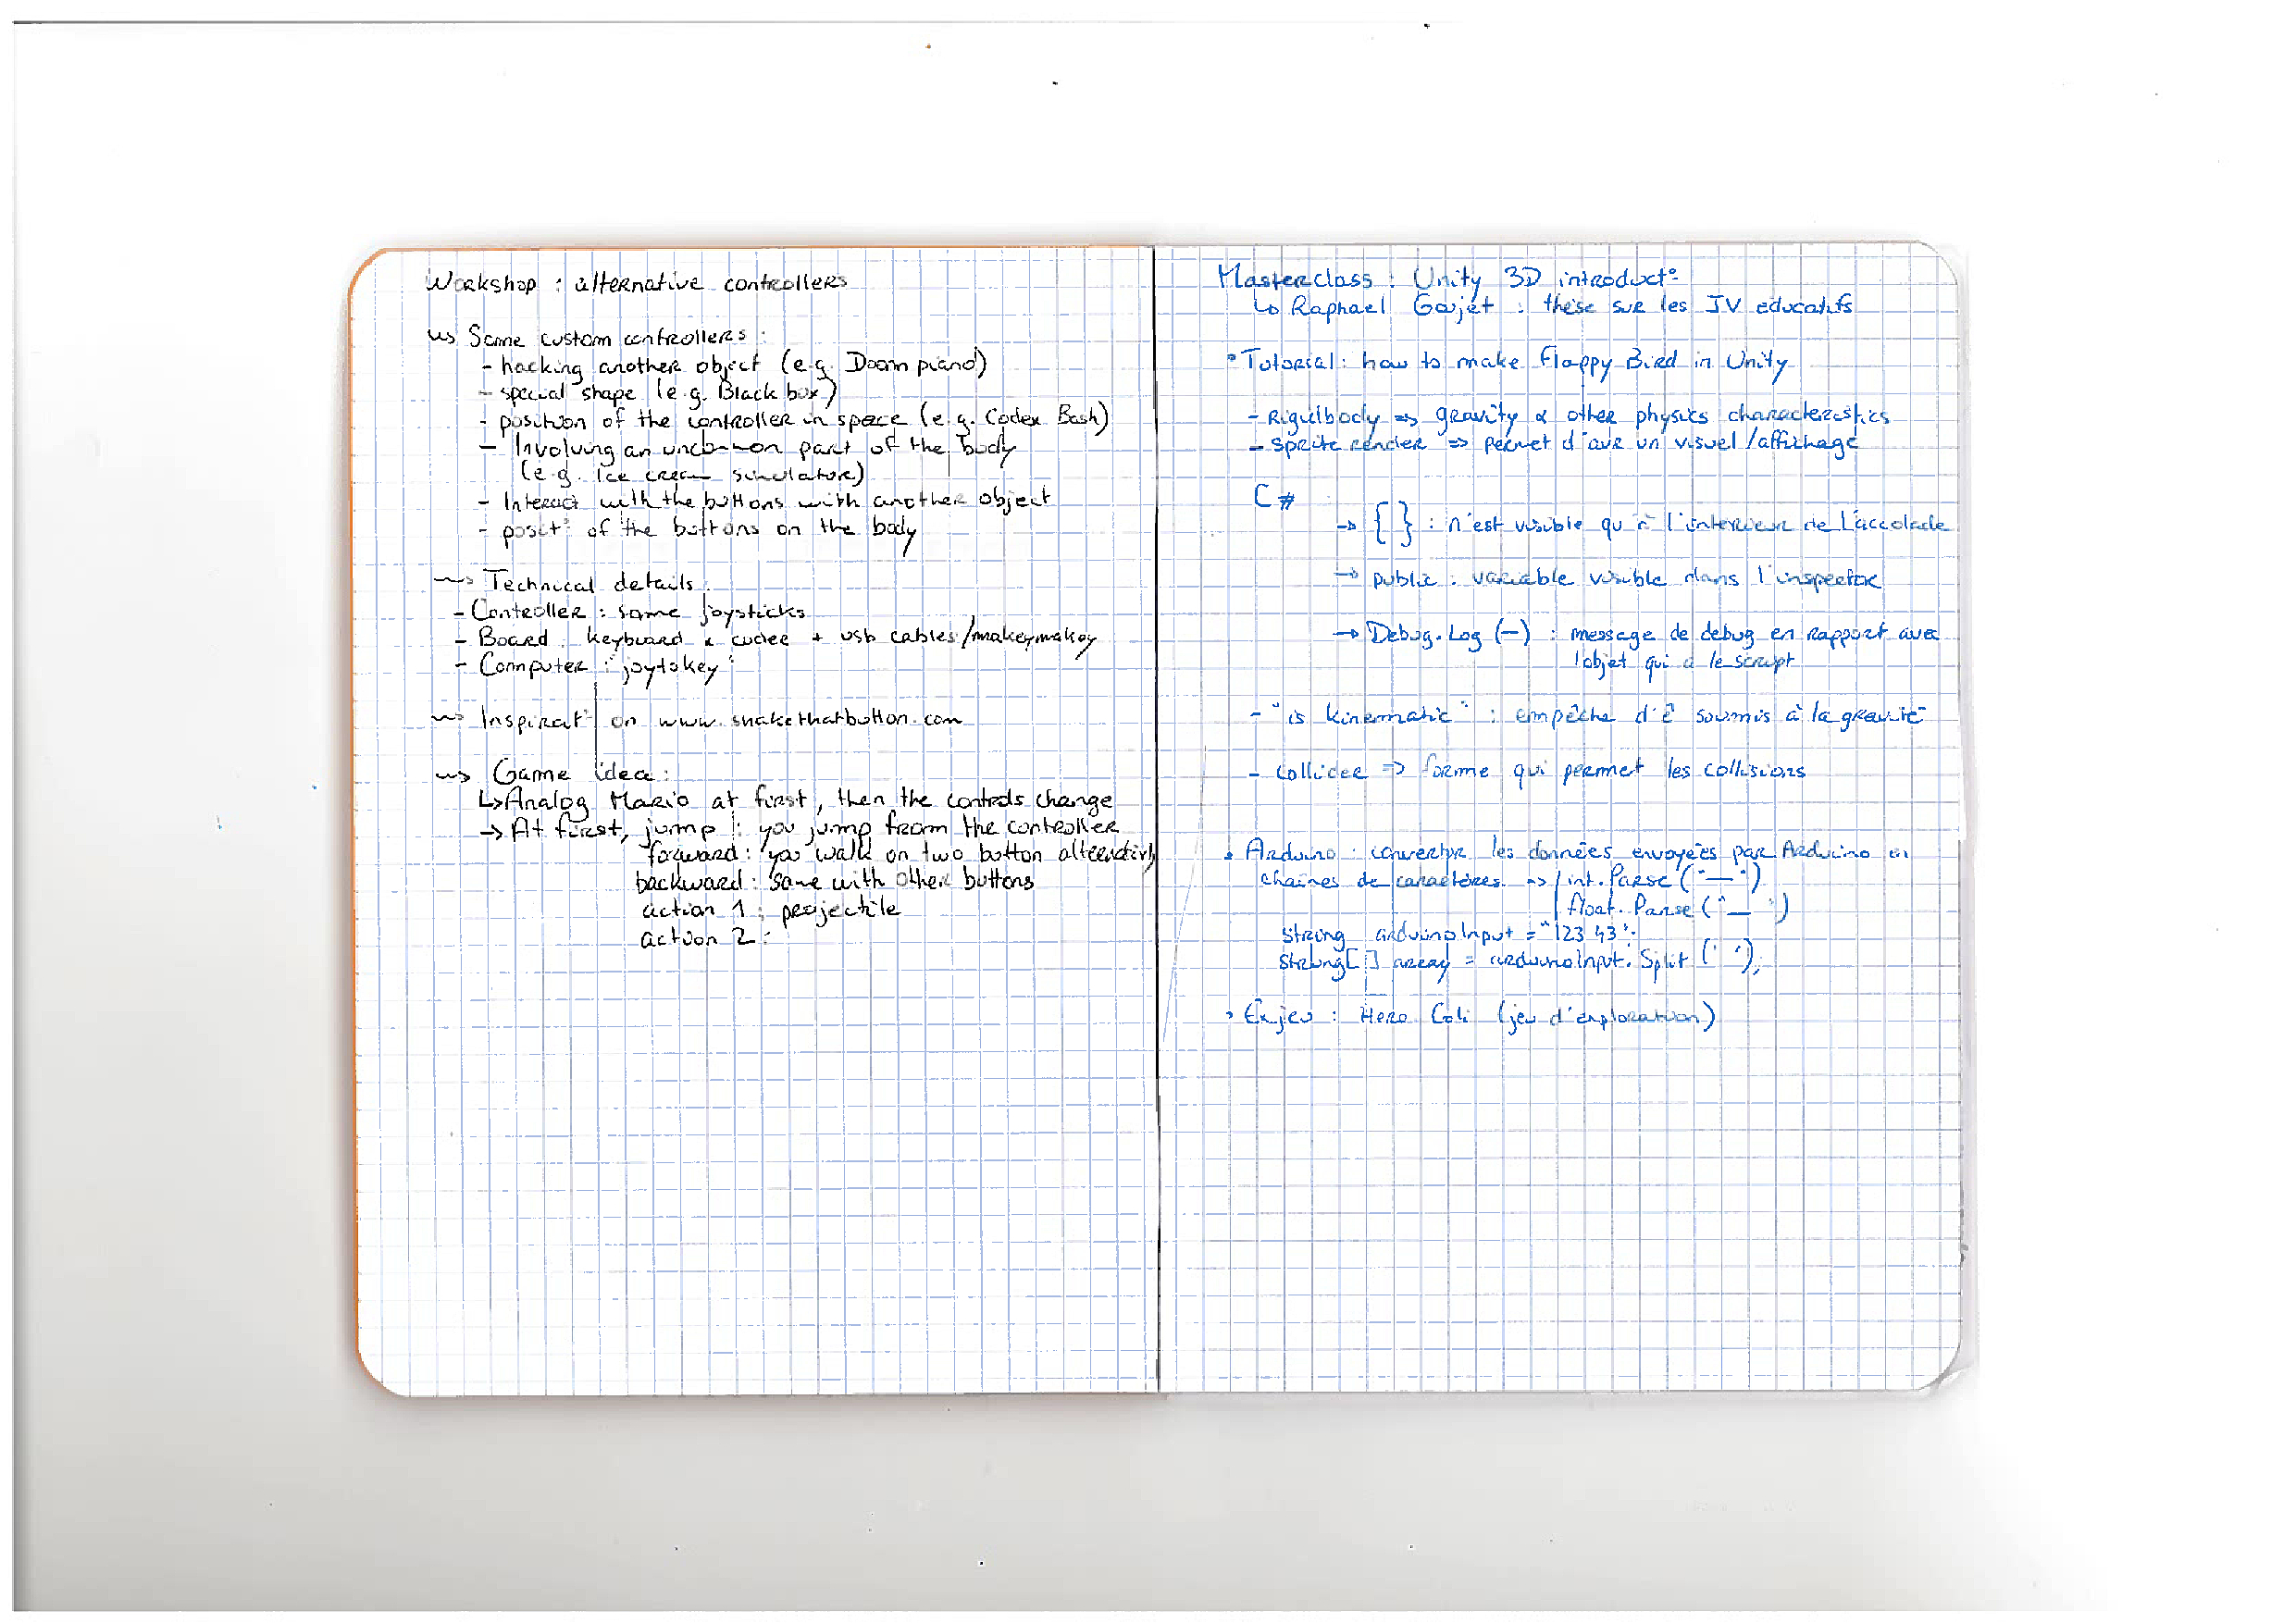 Workshop : alternative controllers
Some custom controllers :
- hacking another object (e.g. Doom piano)
- special shape (e.g. Black box)
- position of the controller in space (e.g. Codex Bash)
- Involving an uncommon part of the body
(e.g. Ice cream simulator)
- Interact with the buttons with another object
- posit° of the buttons on the body
Technical details :
- Controller : some joysticks
- Board : keyboard & + usb cables/makeymakey
- Computer : "joytokey"
Inspirat° on www.shakethatbutton.com
Game idea :
↳ Analog Mario at first, then the controls change
→ At first, jump : you jump from the controller
forward : you walk on two button
backward : same with other buttons
action 1 : projectile
action 2 :
Masterclass : Unity 3D introduct°
↳ Raphael : thèse sur les JV educatifs
° Tutorial : how to make Flappy Bird in Unity
- Rigidbody => gravity & other physics characteristics
- Sprite render => permet d'avr un visuel/affichage
C#
→ { } : n'est visible qu'à l'intérieur de l'accolade
→ public : variable visible dans l'inspector
→ Debug.Log (—) : message de debug en rapport avec
l'objet qui a le script
- "is kinematic" : empêche d'ê soumis à la gravité
- Collider => forme qui permet les collisions
Arduino : convertir les données envoyées par Arduino en
chaînes de caractères => int.Parse ("—")
float.Parse ("—")
string arduinoInput = "123 43";
string[] array = arduinoInput.Split (' ');
Exjeu : Hero Coli (jeu d'exploration)